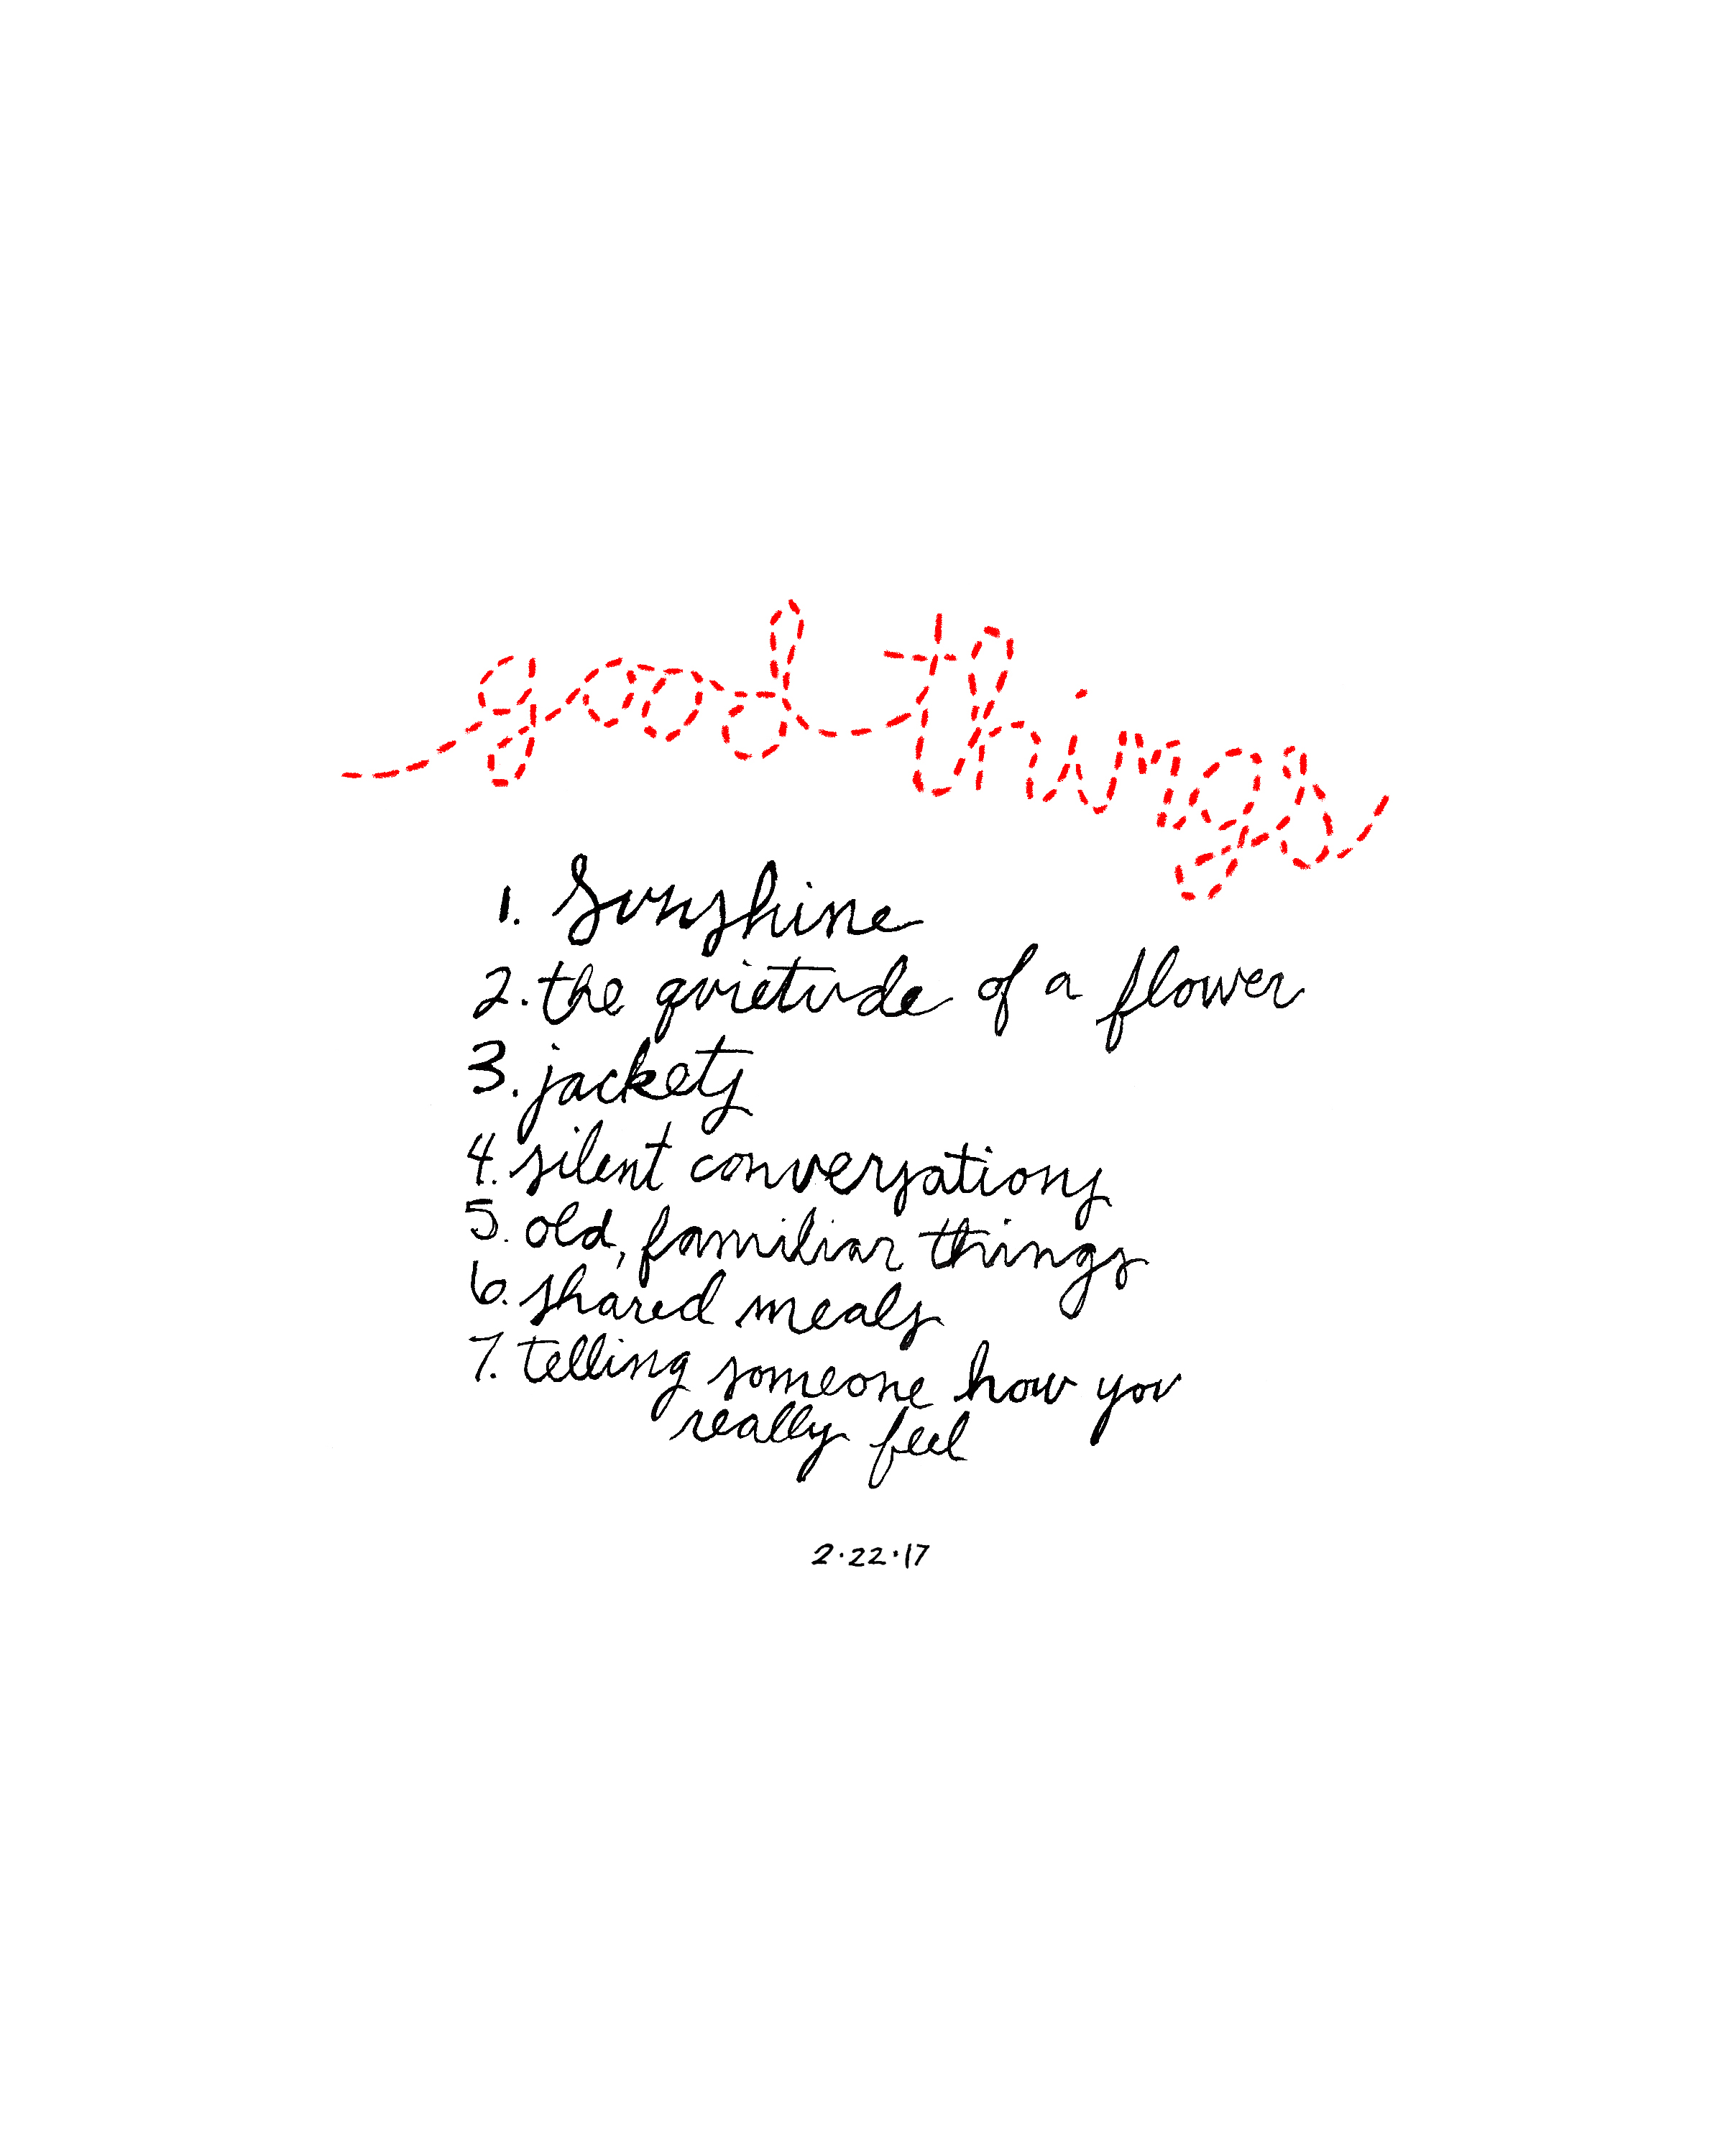 good things
1. Sunshine
2. the quietude of a flower
3. jackets
4. silent conversations
5. old, familiar things
6. shared meals
7. telling someone how you
really feel
2.22.17